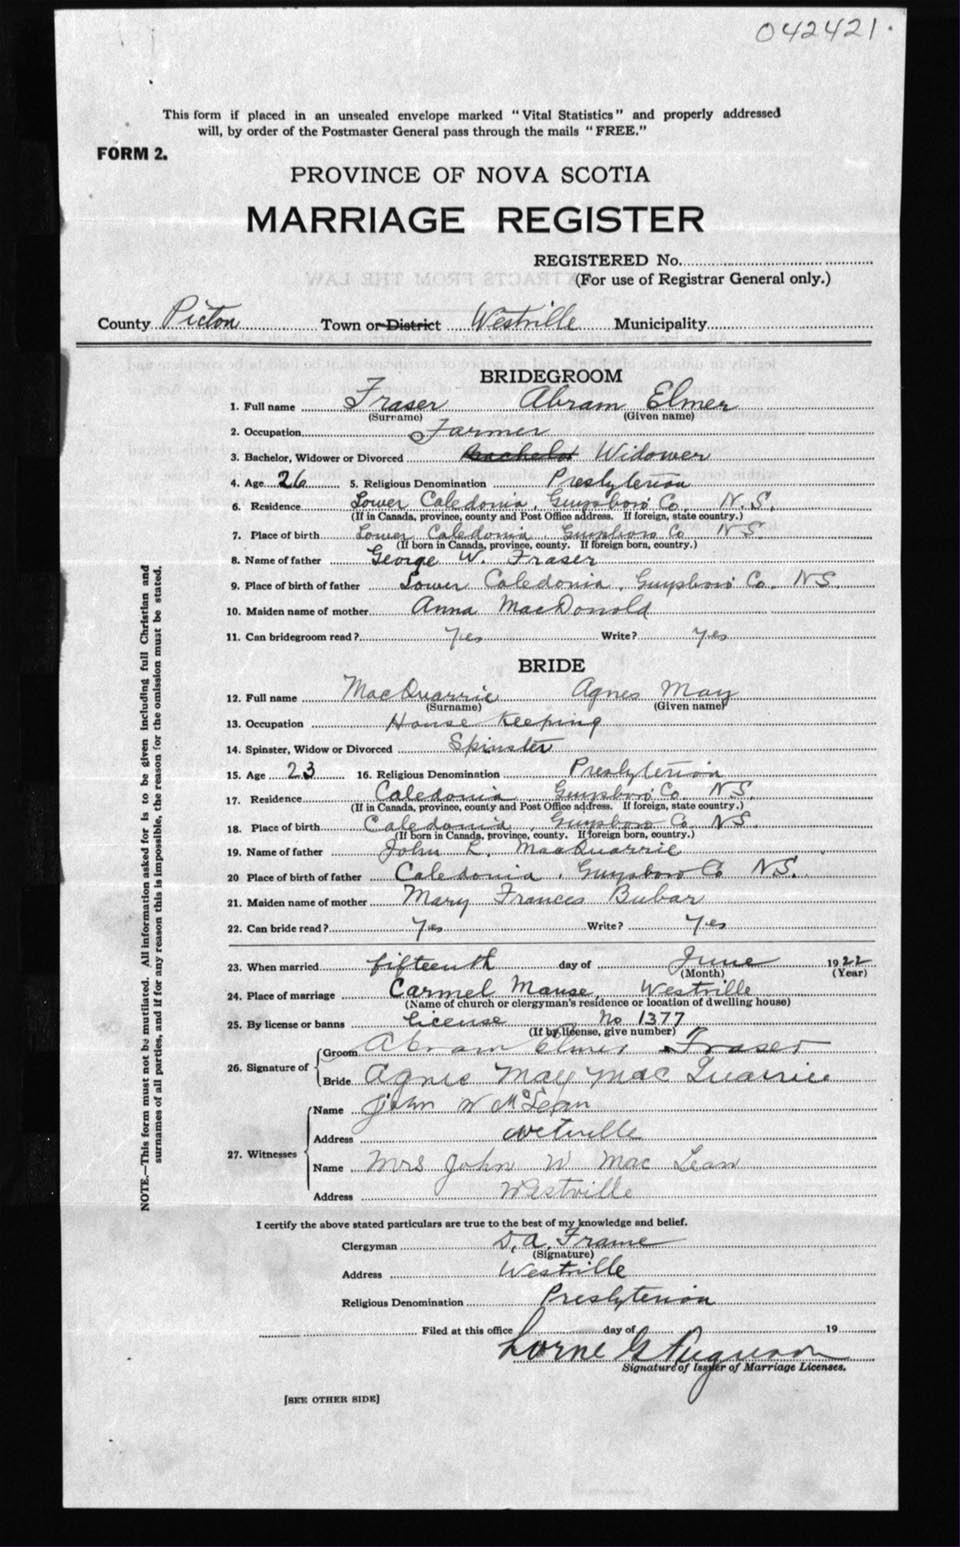 042421.
This form if placed in an unsealed envelope marked "Vital Statistics" and properly addressed
will, by order of the Postmaster General pass through the mails "FREE."
FORM 2.
PROVINCE OF NOVA SCOTIA
MARRIAGE REGISTER
REGISTERED No.
(For use of Registrar General only.)
County Picton Town or District Westville Municipality
BRIDEGROOM
1. Full name Fraser Abram Elmer
(Surname) (Given name)
2. Occupation Farmer
3. Bachelor, Widower or Divorced Bachelor Widower
4. Age 26 5. Religious Denomination Presbyterian
6. Residence Lower Caledonia, Guysboro Co. N.S.
(If in Canada, province, county and Post Office address. If foreign, state country.)
7. Place of birth Lower Caledonia, Guysboro Co N.S.
(If born in Canada, province, county. If foreign born, country.)
8. Name of father George W. Fraser
9. Place of birth of father Lower Caledonia, Guysboro Co. N.S.
10. Maiden name of mother Anna MacDonald
11. Can bridegroom read? Yes Write? Yes
BRIDE
12. Full name MacQuarrie Agnes May
(Surname) (Given name)
13. Occupation House Keeping
14. Spinster, Widow or Divorced Spinster
15. Age 23 16. Religious Denomination Presbyterian
17. Residence Caledonia, Guysboro Co. N.S.
(If in Canada, province, county and Post Office address. If foreign, state country.)
18. Place of birth Caledonia, Guysboro Co N.S.
(If born in Canada, province, county. If foreign born, country.)
19. Name of father John L. MacQuarrie
20 Place of birth of father Caledonia, Guysboro Co N.S.
21. Maiden name of mother Mary Frances Bubar
22. Can bride read? Yes Write? Yes
23. When married fifteenth day of June 1922
(Month) (Year)
24. Place of marriage Carmel Manse, Westville
(Name of church or clergyman's residence or location of dwelling house)
25. By license or banns License No 1377
(If by license, give number)
26. Signature of Groom Abram Elmer Fraser
Bride Agnes May Mac Quarrie
27. Witnesses Name John W McLean
Address Westville
Name Mrs John W Mac Lean
Address Westville
I certify the above stated particulars are true to the best of my knowledge and belief.
Clergyman D. A. Frame
(Signature)
Address Westville
Religious Denomination Presbyterian
Filed at this office day of 19
Lorne G Ferguson
Signature of Issuer of Marriage Licenses.
[SEE OTHER SIDE]
NOTE.—This form must not be mutilated. All information asked for is to be given including full Christian and
surnames of all parties, and if for any reason this is impossible, the reason for the omission must be stated.